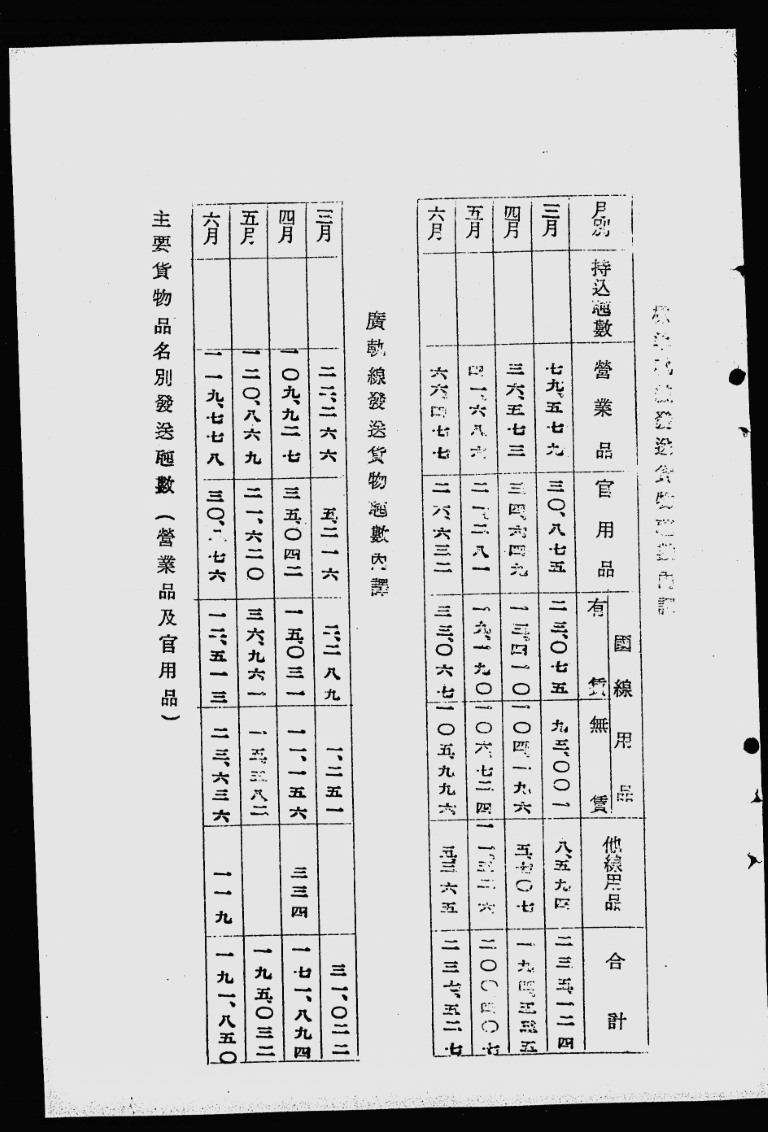 發送貨物瓲數內譯
月別 持込瓲數 營業品 官用品 國線用品 有賃 無賃 他線用品 合計
三月 七九、五七九 三〇、八七五 二三、〇七五 九三、〇〇一 八、五九四 二三五、一二四
四月 三六、五七三 三四、六四九 一三、四一〇 一〇四、一九六 五、七〇七 一九四、五三五
五月 四一、六八六 二一、二八一 一九、一九〇 一〇六、七二四 一一、五二六 二〇〇、四〇七
六月 六六、四七七 二六、六三二 三三、〇六七 一〇五、九九六 五、三六五 二三七、五二七
廣軌線發送貨物瓲數內譯
三月 二二、二六六 五、二一六 二、二八九 一、二五一 三一、〇二二
四月 一〇九、九二七 三五、〇四二 一五、〇三一 一一、一五六 三三四 一七一、八九四
五月 一二〇、八六九 二一、六二〇 三六、九六一 一五、五八二 一九五、〇三二
六月 一一九、七七八 三〇、二七六 一二、五一三 二三、六三六 一一九 一九一、八五〇
主要貨物品名別發送瓲數(營業品及官用品)